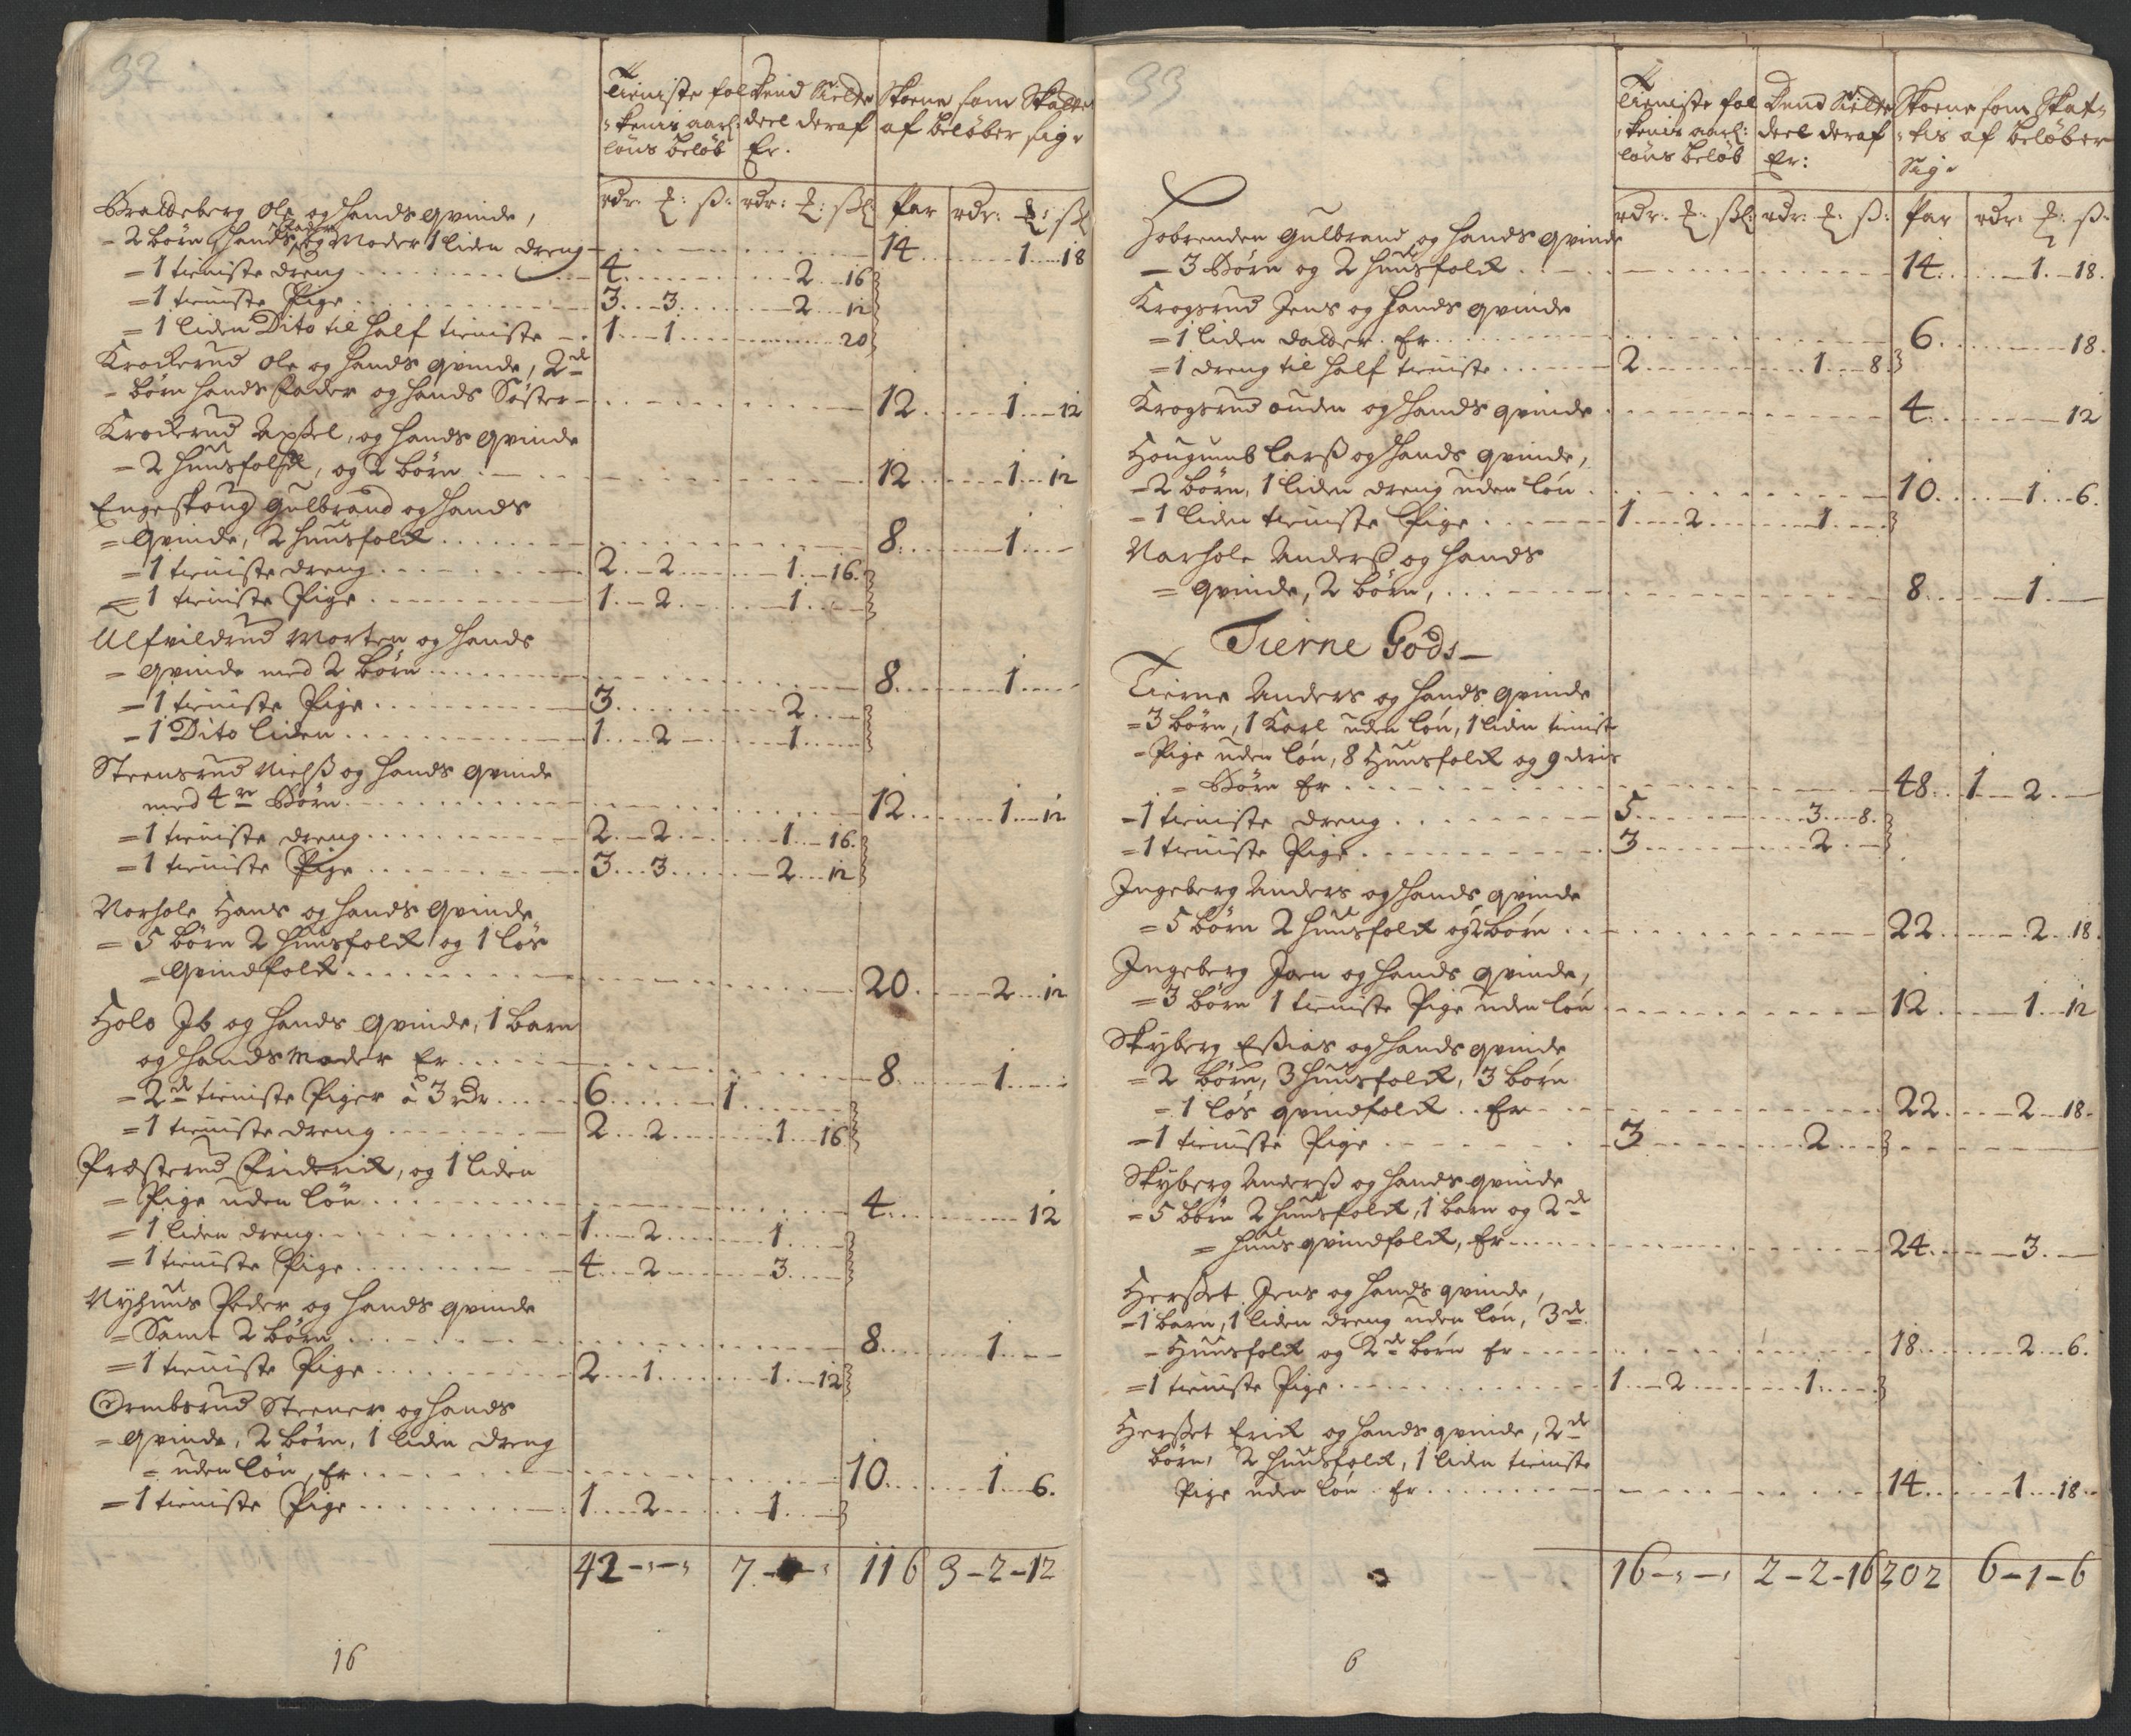 32
Tieniste fol Dend Siette Skoene som Skatt
-kenis aarl: deel deraf af beløber sig.
löns beløb Er.
rdr. ℥: ß. rdr: ℥: ßl: Par rdr: ℥: ßl
Braldeberg Ole og hands qvinde,
- 2 børn hands Fader og Moder 1 liden dreng 14 1 18
= 1 tieniste dreng 4 2 16
= 1 tieniste Pige 3 3 2 12
= 1 liden Dito til half tieniste 1 1 20
Krockerud Ole og hands qvinde, 2de
- børn hands Fader og hands Söster 12 1 12
Krockerud Axsel, og hands qvinde
- 2 huusfolck, og 2 børn 12 1 12
Engeskoug Gulbrand og hands
= qvinde, 2 huusfolck 8 1
= 1 tieniste dreng 2 2 1 16
= 1 tieniste Pige 1 2 1
Ulfvildrud Morten og hands
= qvinde med 2 børn 8 1
= 1 tieniste Pige 3 2
- 1 Dito liden 1 2 1
Steensrud Nielß og hands qvinde
med 4re Børn 12 1 12
= 1 tieniste dreng 2 2 1 16
= 1 tieniste Pige 3 3 2 12
Norhole Hans og hands qvinde
= 5 børn 2 huusfolck og 1 løs
= qvindfolck 20 2 12
Holo Ib og hands qvinde, 1 barn
og hands Moder Er 8 1
= 2de tieniste Piger à 3 rdr 6 1
= 1 tieniste dreng 2 2 1 16
Præsterud Friderick, og 1 liden
= Pige uden løn 4 12
= 1 liden dreng 1 2 1
= 1 tieniste Pige 4 2 3
Nyhuus Peder og hands qvinde
= Samt 2 børn 8 1
= 1 tieniste Pige 2 1 1 12
Ormbsrud Steener og hands
= qvinde, 2 børn, 1 liden dreng
= uden løn, Er 10 1 6.
= 1 tieniste Pige 1 2 1
42 - - 7 - - 116 3 - 2 - 12
16
33
Tieniste fol Dend Siette Skoene som Skat=
-kenis aarl: deel deraf =tis af beløber
löns beløb Er: Sig.
rdr. ℥: ßl: rdr: ℥: ß: Par rdr: ℥: ß.
Hobrenden Gulbrand og hands qvinde
= 3 Børn og 2 huusfolck 14 1 18.
Krogsrud Jens og hands qvinde
= 1 liden datter. Er 6 18.
= 1 dreng til half tieniste 2 1 8.
Krogsrud ouden og hands qvinde 4 12
Hougumb Larß og hands qvinde,
- 2 børn, 1 liden dreng uden løn 10 1 6.
- 1 liden tieniste Pige 1 2 1
Narhole Anderß og hands
= qvinde, 2 børn, 8 1
Tierne Gods
Tierne Anders og hands qvinde
= 3 børn, 1 Karl uden løn, 1 liden tienist
- Pige uden løn, 8 Huusfolck og 9 deris
= Børn Er 48 1 2
- 1 tieniste dreng 5 3 8.
= 1 tieniste Pige 3 2
Ingeberg Anders og hands qvinde
= 5 børn 2 huusfolck og 2 børn 22 2 18.
Ingeberg Joen og hands qvinde,
= 3 børn 1 tieniste Pige uden løn 12 1 12
Skyberg Eßias og hands qvinde
= 2 børn, 3 huusfolck, 3 børn
- 1 løs qvindfolck. Er 22 2 18.
= 1 tieniste Pige 3 2
Skyberg Anderß og hands qvinde
= 5 børn 2 huusfolck, 1 barn og 2de
= huus qvindfolck, Er 24 3.
Herßet Jens og hands qvinde,
= 1 barn, 1 liden dreng uden løn, 3de
- Huusfolck og 2de børn Er 18 2 6.
= 1 tieniste Pige 1 2 1
Herßet Erick og hands qvinde, 2de
børn, 2 huusfolck, 1 liden tieniste
Pige uden løn. Er 14 1 18
16 - - 2 - 2 - 16 202 6 - 1 - 6
6